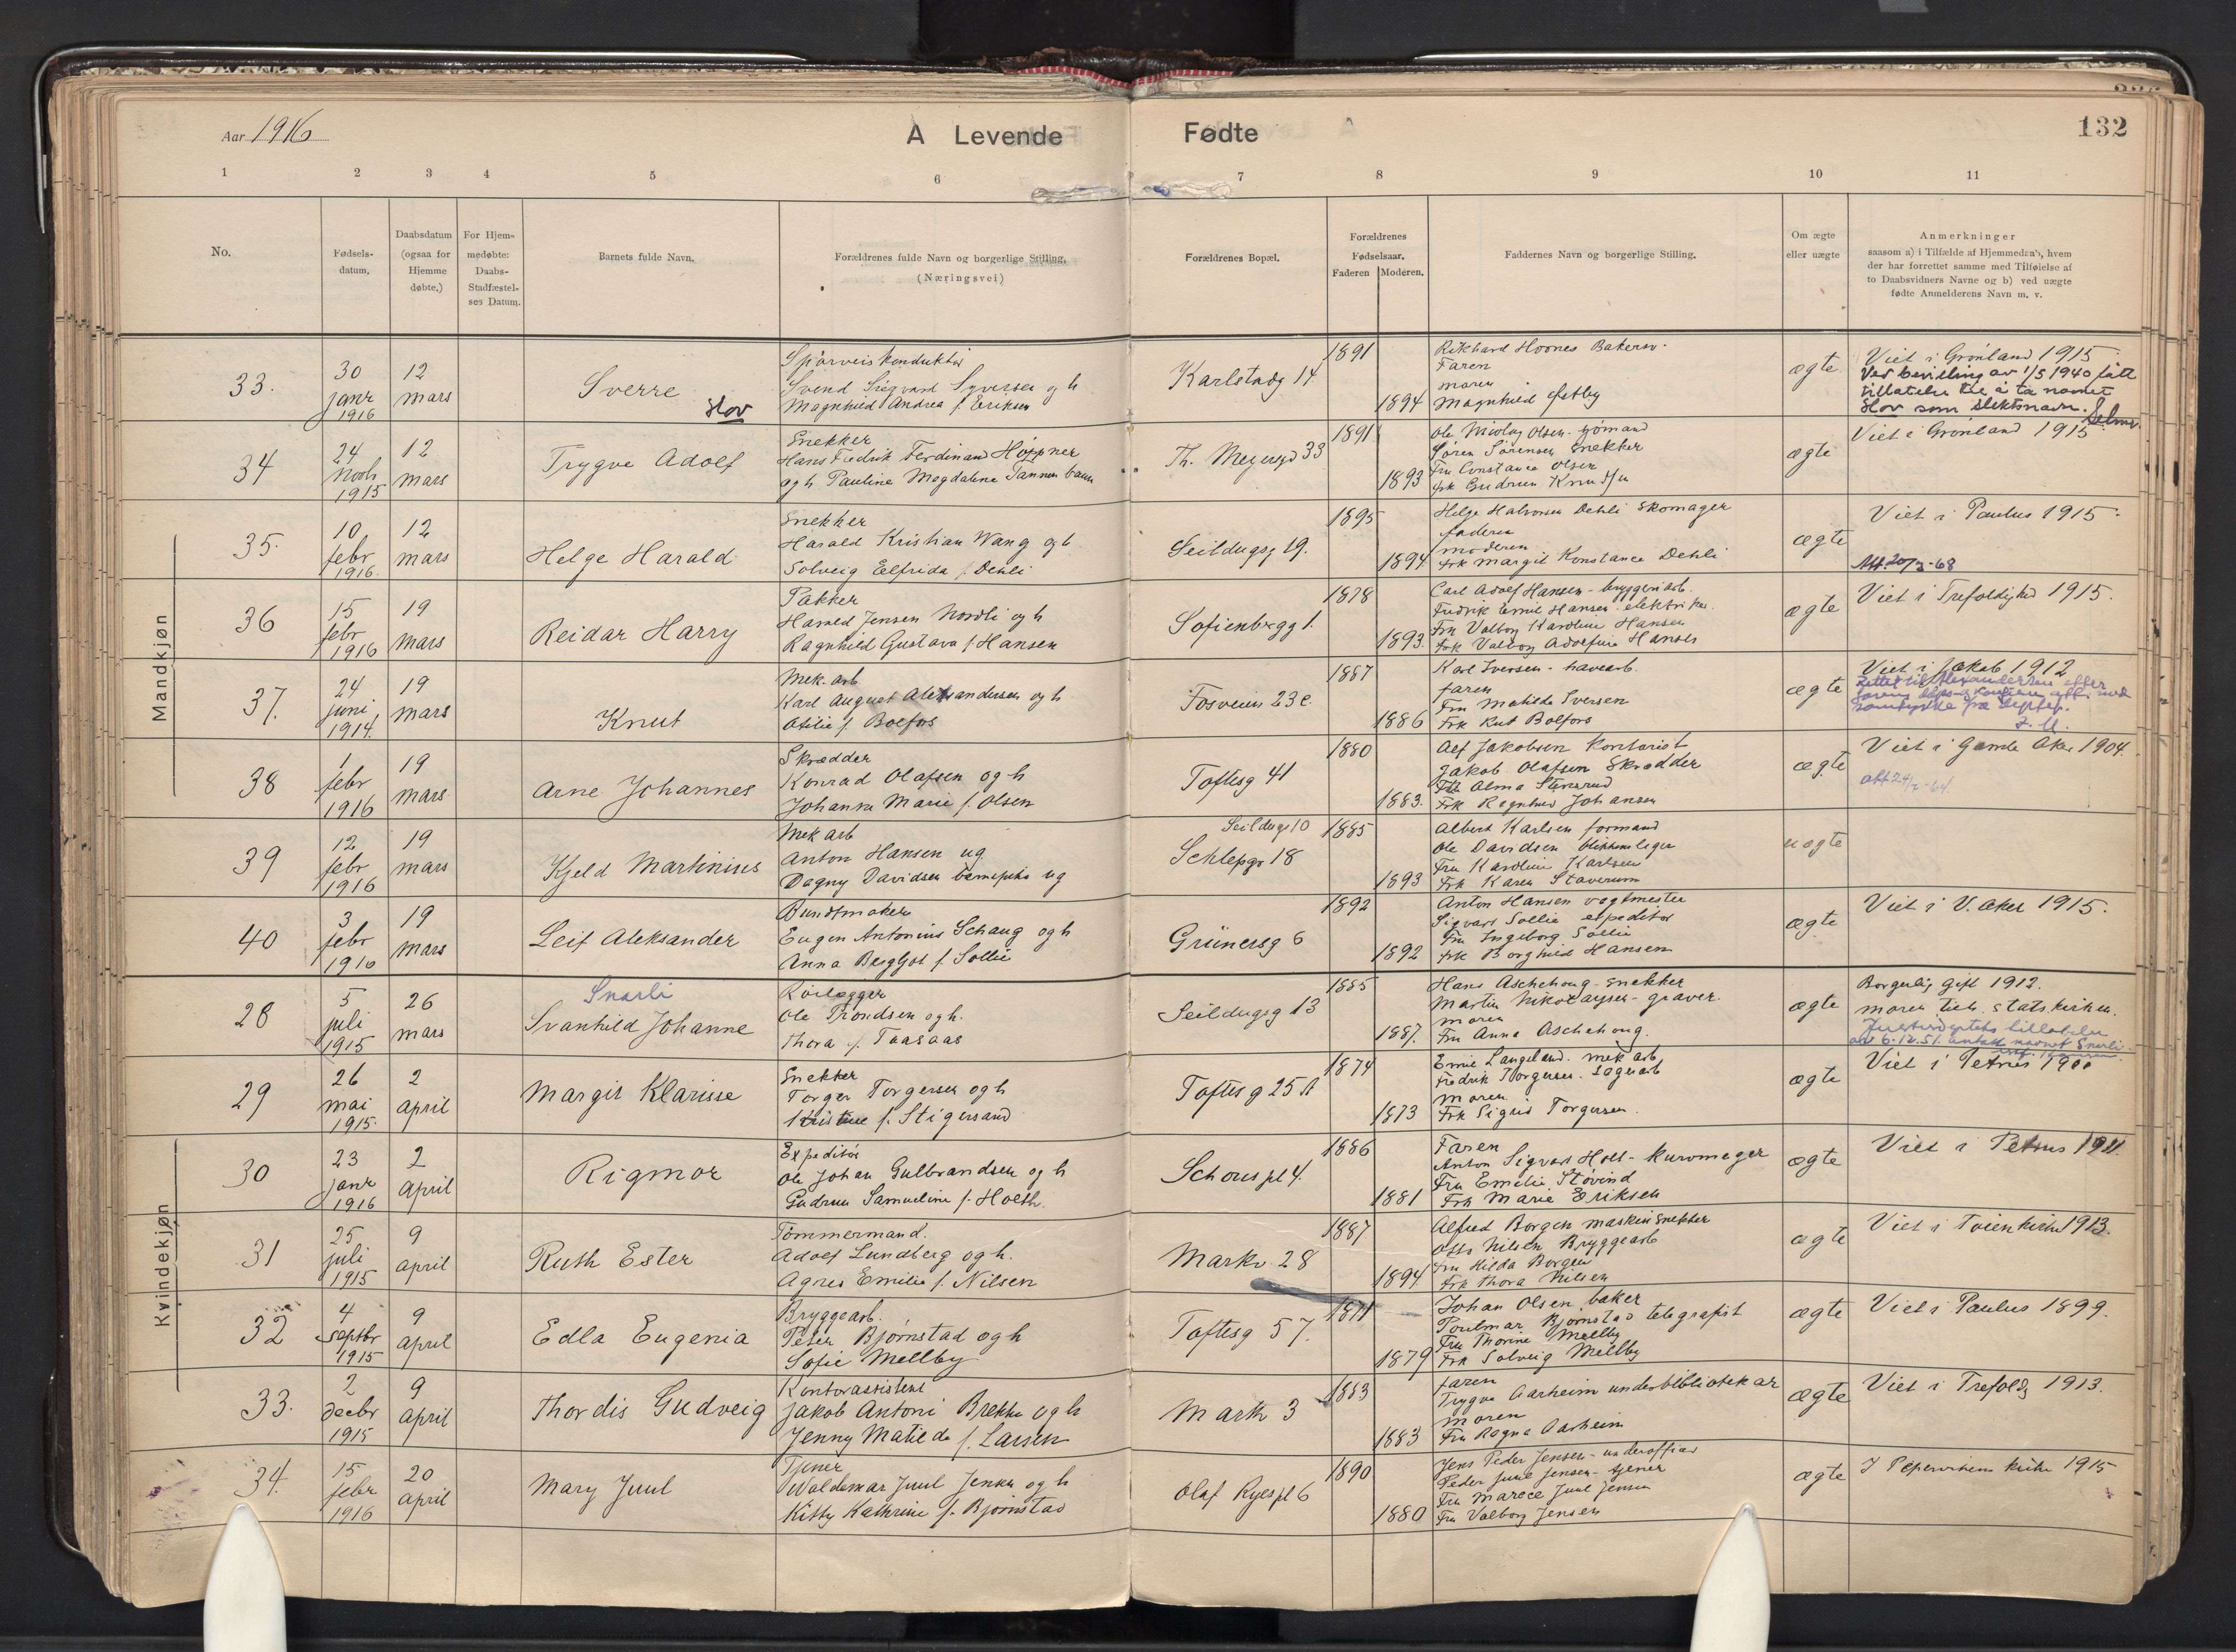 Aar 1916
A Levende Fødte
132
1 2 3 4 5 6 7 8 9 10 11
No.
Fødsels-
datum.
Daabsdatum
(ogsaa for
Hjemme
døbte.)
For Hjem-
medøbte:
Daabs-
Stadfæstel-
ses Datum.
Barnets fulde Navn.
Forældrenes fulde Navn og borgerlige Stilling.
(Næringsvei)
Forældrenes Bopæl.
Forældrenes
Fødselsaar.
Faderen Moderen.
Faddernes Navn og borgerlige Stilling.
Om ægte
eller uægte
Anmerkninger
saasom a) i Tilfælde af Hjemmedaab, hvem
der har forrettet samme med Tilføielse af
to Daabsvidners Navne og b) ved uægte
fødte Anmelderens Navn m. v.
Mandkjøn
33.
30
janr
1916
12
mars
Sverre
Slov
Sporveiskonduktør
Svend Sigvard Syversen og h
Magnhild Andrea f. Eriksen
Karlstadg 14
1891
1894
Rikhard Hoones Bakersv.
Faren
moren
Magnhild Østby
ægte
Viet i Grønland 1915
Ved bevilling av 1/5 1940 fått
tillatelse til å ta navnet
Slov som slektsnavn.
34
24
Novbr
1915
12
mars
Trygve Adolf
Snekker
Hans Fredrik Ferdinand Høppner
og h Pauline Magdalene Tannenbaum
Th. Meyersgd 33
1891
1893
Ole Nicolay Olsen - gjømand
Søren Sørensen Snekker
Fru Constance Olsen
frk Gudrun Knudsen
ægte
Viet i Grønland 1915
35.
10
febr
1916.
12
mars
Helge Harald
Snekker
Harald Kristian Wang og h
Solveig Elfrida f. Dehli
Seildugsg 19.
1895
1894
Helge Halvorsen Dehli Skomager
faderen
moderen
frk Margit Konstance Dehli
ægte
Viet i Paulus 1915.
Att. 20/3-68
36
15
febr
1916
19
mars
Reidar Harry
Pakker
Harald Jensen Nordli og h
Ragnhild Gustava f. Hansen
Sofienbergg 1.
1878
1893.
Carl Adolf Hansen - bryggeriarb.
Fredrik Emil Hansen - elektriker.
Fru Valborg Karoline Hansen
frk Valborg Adolfine Hansen
ægte
Viet i Trefoldighed 1915.
37.
24
juni
1914.
19
mars
Knut
Mek. arb
Karl August Aleksandersen og h
Otilie f. Bolfos
Fosveien 23 c.
1887
1886
Karl Iversen - havearb.
faren
Fru Matilde Iversen
Frk Rut Bolfors
ægte
Viet i Jakob 1912
38
1
febr
1916
19
mars
Arne Johannes
Skrædder
Konrad Olafsen og h
Johanna Marie f. Olsen
Toftesg 41
1880
1883.
Alf Jakobsen Kontorist
Jakob Olafsen Skrædder
Frk Alma Stensrud
Frk Ragnhild Johansen
ægte
Viet i Gamle Aker 1904.
39
12
febr
1916
19
mars
Kjeld Martinius
Mek arb
Anton Hansen ug
Dagny Davidsen barnepike ug
Seildugs 10
Schlepgr 18
1885
1893
Albert Karlsen formand
Ole Davidsen blikkenslager
Fru Karoline Karlsen
Frk Karen Staverum
uægte
40
3
febr
1916
19
mars
Leif Aleksander
Bundtmaker
Eugen Antonius Schaug og h
Anna Bergljot f. Sollie
Grünersg 6
1892
1892
Anton Hansen vagtmester
Sigvart Sollie expeditør
Fru Ingeborg Sollie
frk Borghild Hansen
ægte
Viet i V. Aker 1915.
Kvindekjøn
28
5
juli
1915
26
mars
Snarli
Svanhild Johanne
Rørlægger
Ole Trondsen og h.
Thora f. Taasaas
Seildugsg 13
1885
1887.
Hans Aschehoug - snekker
Martin Nikolaysen - graver.
moren
Fru Anna Aschehoug.
ægte
Borgerlig gift 1912.
moren tilh. statskirken.
29
26
mai
1915.
2
april
Margit Klarisse
Snekker
Torger Torgersen og h
Kristine f. Stigersand
Toftesg 25 A
1874
1873
Emil Langeland. mek arb,
Fredrik Torgersen. sagarb
moren
Frk Sigrid Torgersen.
ægte
Viet i Petrus 1900
30
23
janr
1916
2
april
Rigmor
Expeditør
Ole Johan Gulbrandsen og h
Gudrun Samueline f. Holth.
Schouspl 4.
1886
1881
Faren
Anton Sigvart Holt - kurvmager
Fru Emelie Støvind
Frk Marie Eriksen
ægte
Viet i Petrus 1911.
31
25
juli
1915
9
april
Ruth Ester
Tømmermand.
Adolf Lundberg og h.
Agnes Emilie f. Nilsen
Markv. 28
1887
1894
Alfred Borgen maskinsnekker
Otto Nilsen Bryggearb
Fru Hilda Borgen
Frk Thora Nilsen
ægte
Viet i Tøienkirke 1913.
32
4
septbr
1915
9
april
Edla Eugenia
Bryggearb.
Peter Bjørnstad og h
Sofie Mellby
Toftesg 57.
1871
1879
Johan Olsen baker
Poulmar Bjørnstad telegrafist
Fru Thorine Mellby
Frk Solveig Mellby
ægte
Viet i Paulus 1899.
33.
2
decbr
1915
9
april
Thordis Gudveig
Kontorassistent
Jakob Antoni Brekke og h
Jenny Matilde f. Larsen
Markv 3
1883
1883
faren
Trygve Aarheim underbibliotekar
moren
Fru Ragna Aarheim
ægte
Viet i Trefoldg 1913.
34.
15
febr
1916
20
april
Mary Juul
Tjener
Valdemar Juul Jensen og h
Kitty Kathrine f. Bjørnstad
Olaf Ryespl 6
1890
1880
Jens Peder Jensen - underofficer
Peder Juul Jensen - tjener
Fru Marece Juul Jensen
Fru Valborg Jensen
ægte
I Pipervikens kirke 1915